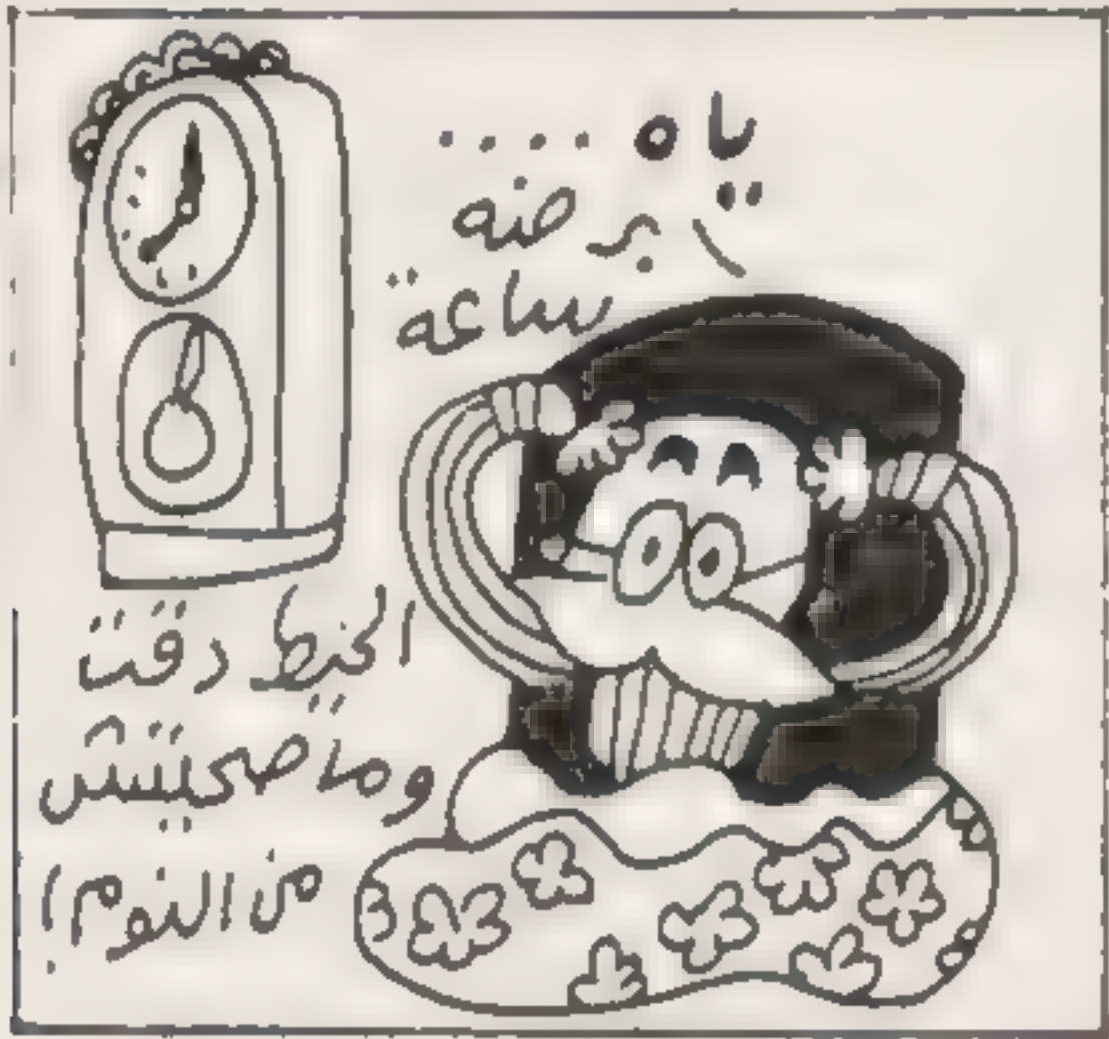 ياه ....
برضه
ساعة
الحيط دقت
وما صحيتش
من النوم!